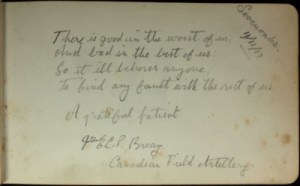 There is good in the worst of us,
And bad in the best of us:
So it ill behoves anyone
to find any fault with the rest of us
A grateful patient
Canadian Field Artillery